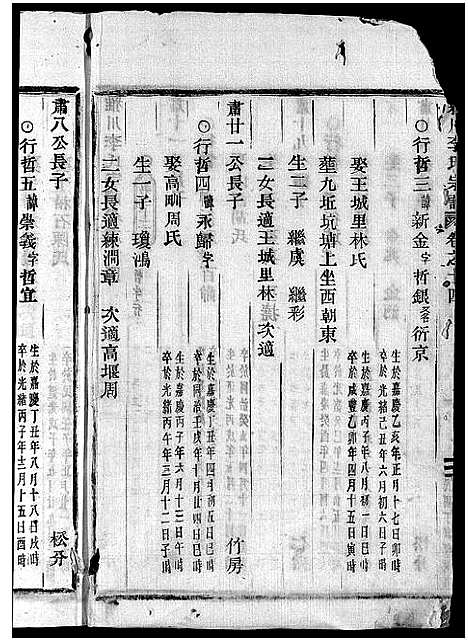 川李氏宗譜卷之十四
行哲三諱新金字哲銀又名衍京
生於嘉慶乙亥年正月十七日卯時
卒於光緒己丑年六月初六日子時
娶王城里林氏
生於嘉慶丙子年八月初一日巳時
卒於咸豐乙卯年四月十五日寅時
塟九坵坑塘上坐西朝東
生二子 繼虞 繼彩
三女長適王城里林 次適
肅廿一公長子 竹房
行哲四諱永歸字
生於嘉慶丁丑年四月初五日巳時
卒於同治壬戌年十月廿四日巳時
娶高畈周氏
生於嘉慶丙子年六月十三日午時
卒於光緒丙午年三月十二日子時
生一子 瓊鴻
二女長適練澗章 次適高堰周
肅八公長子 松房
行哲五諱崇義字哲宜
生於嘉慶丁丑年八月十八日戌時
卒於光緒丙子年三月十五日酉時